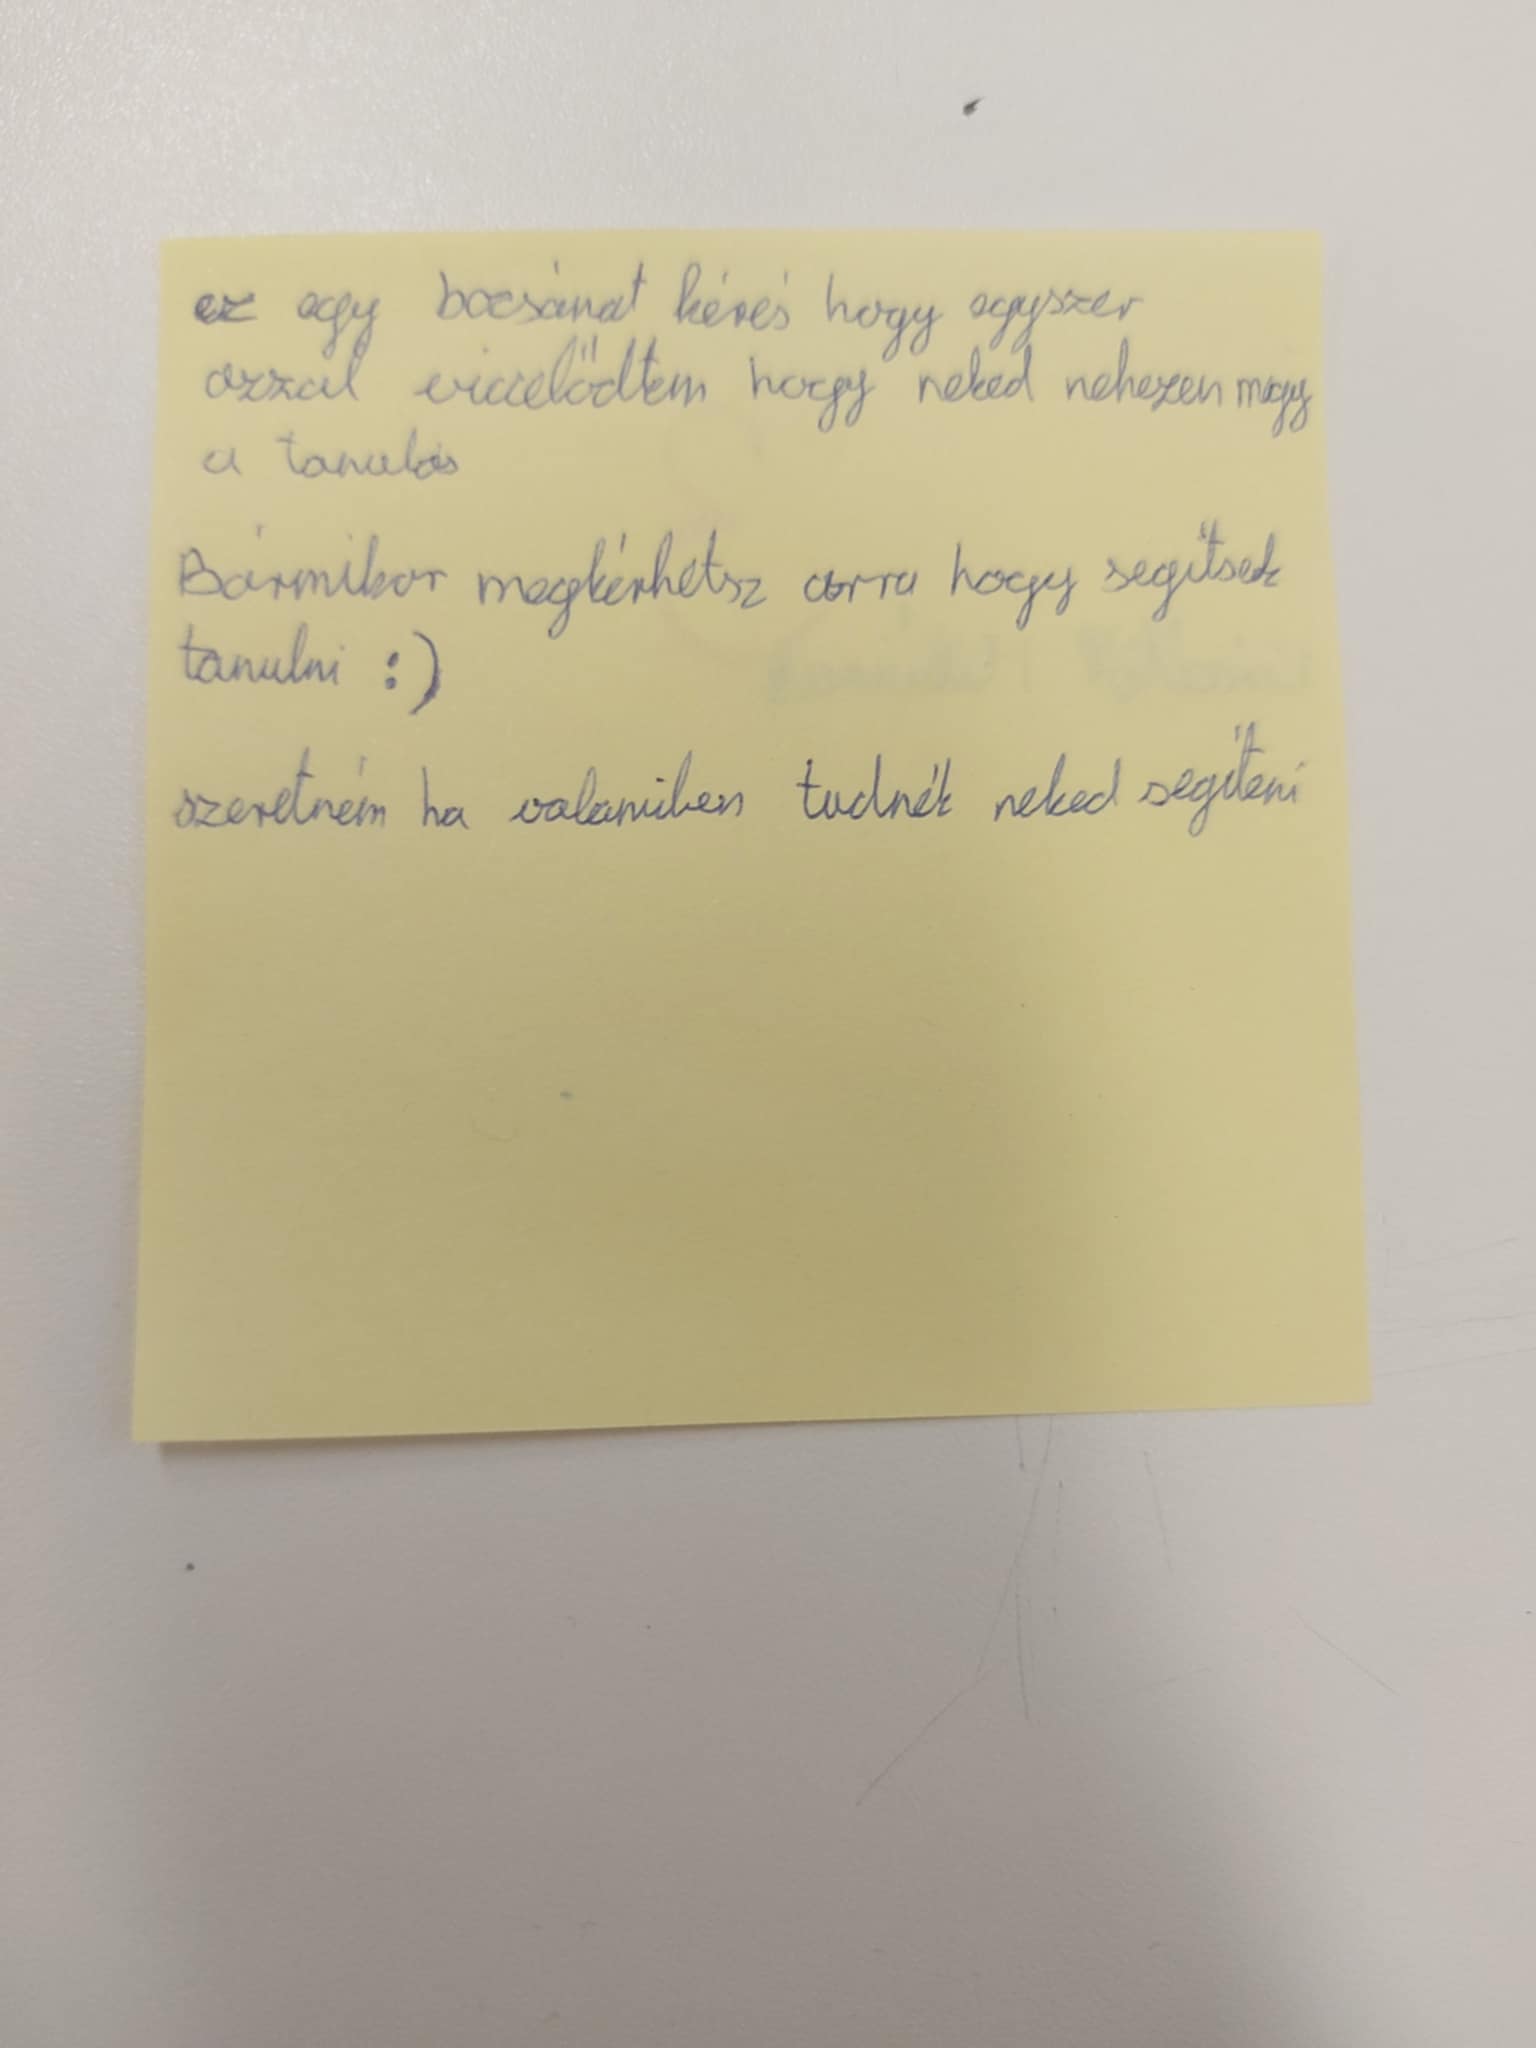 ez egy bocsánat kérés hogy egyszer
azzal viccelődtem hogy neked nehezen megy
a tanulás
Bármikor megkérhetsz arra hogy segítsek
tanulni :)
szeretném ha valamiben tudnék neked segíteni